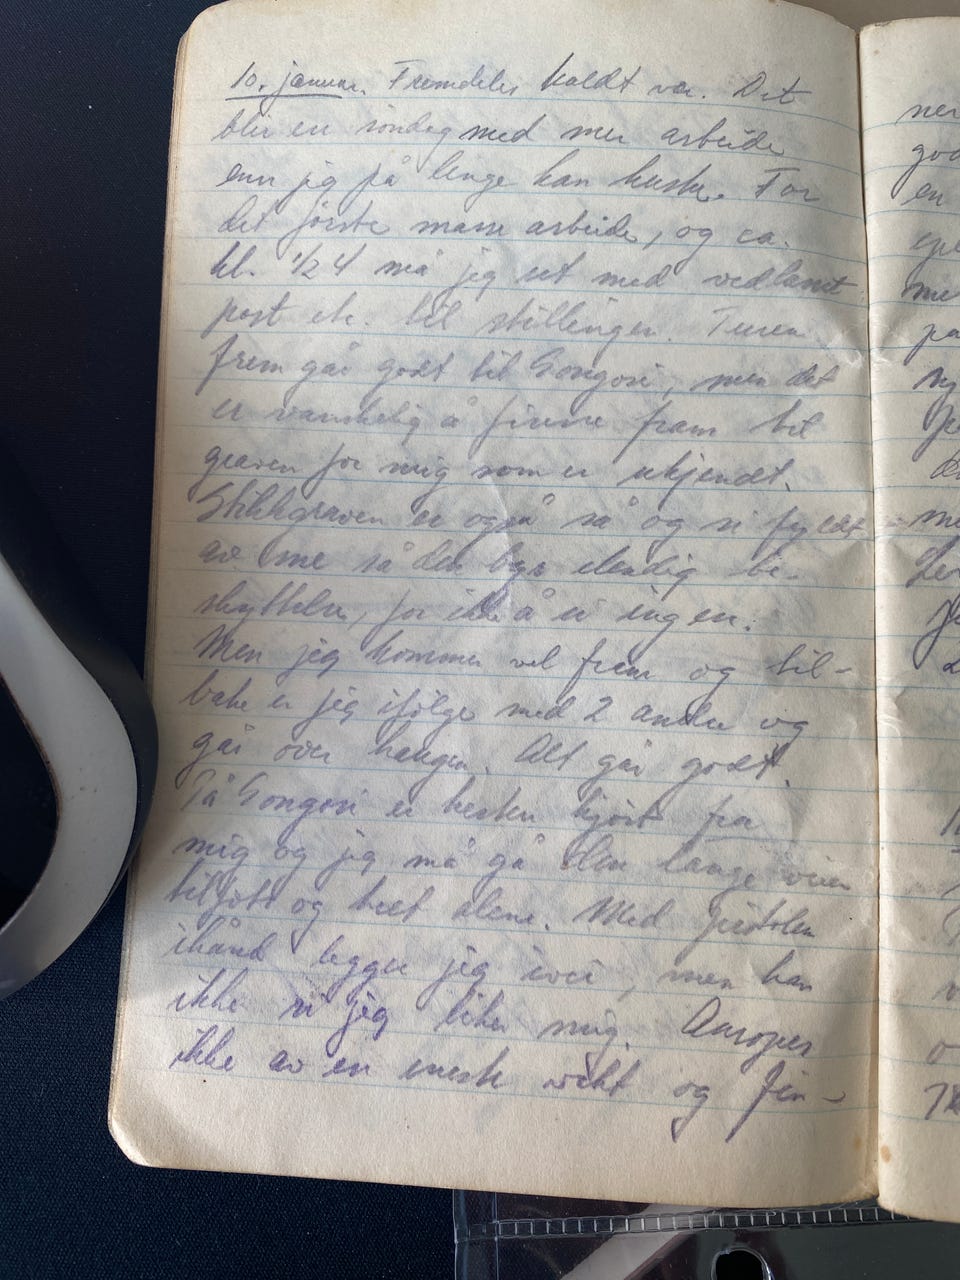 10. januar. Fremdeles koldt vær. Det
blir en søndag med mer arbeide
enn jeg på lenge kan huske. For
det første masse arbeide, og ca.
kl. 1/2 4 må jeg ut med
post etc. til stillingen. Turen
frem går godt til Gongosi, men det
er vanskelig å finne fram til
graven for mig som er ukjendt.
Stikkgraven er også så og si fyldt
av sne så den byr elendig be-
skyttelse, for ikke å si ingen.
Men jeg kommer vel frem og til-
bake er jeg ifølge med 2 andre og
går over haugen. Alt går godt.
På Gongosi er hesten kjørt fra
mig og jeg må gå den lange veien
tilfots og helt alene. Med pistolen
ihånd legger jeg ivei, men kan
ikke si jeg liker mig. Anropes
ikke av en eneste vakt og fin-
ner
go
en
me
pa
ny
me